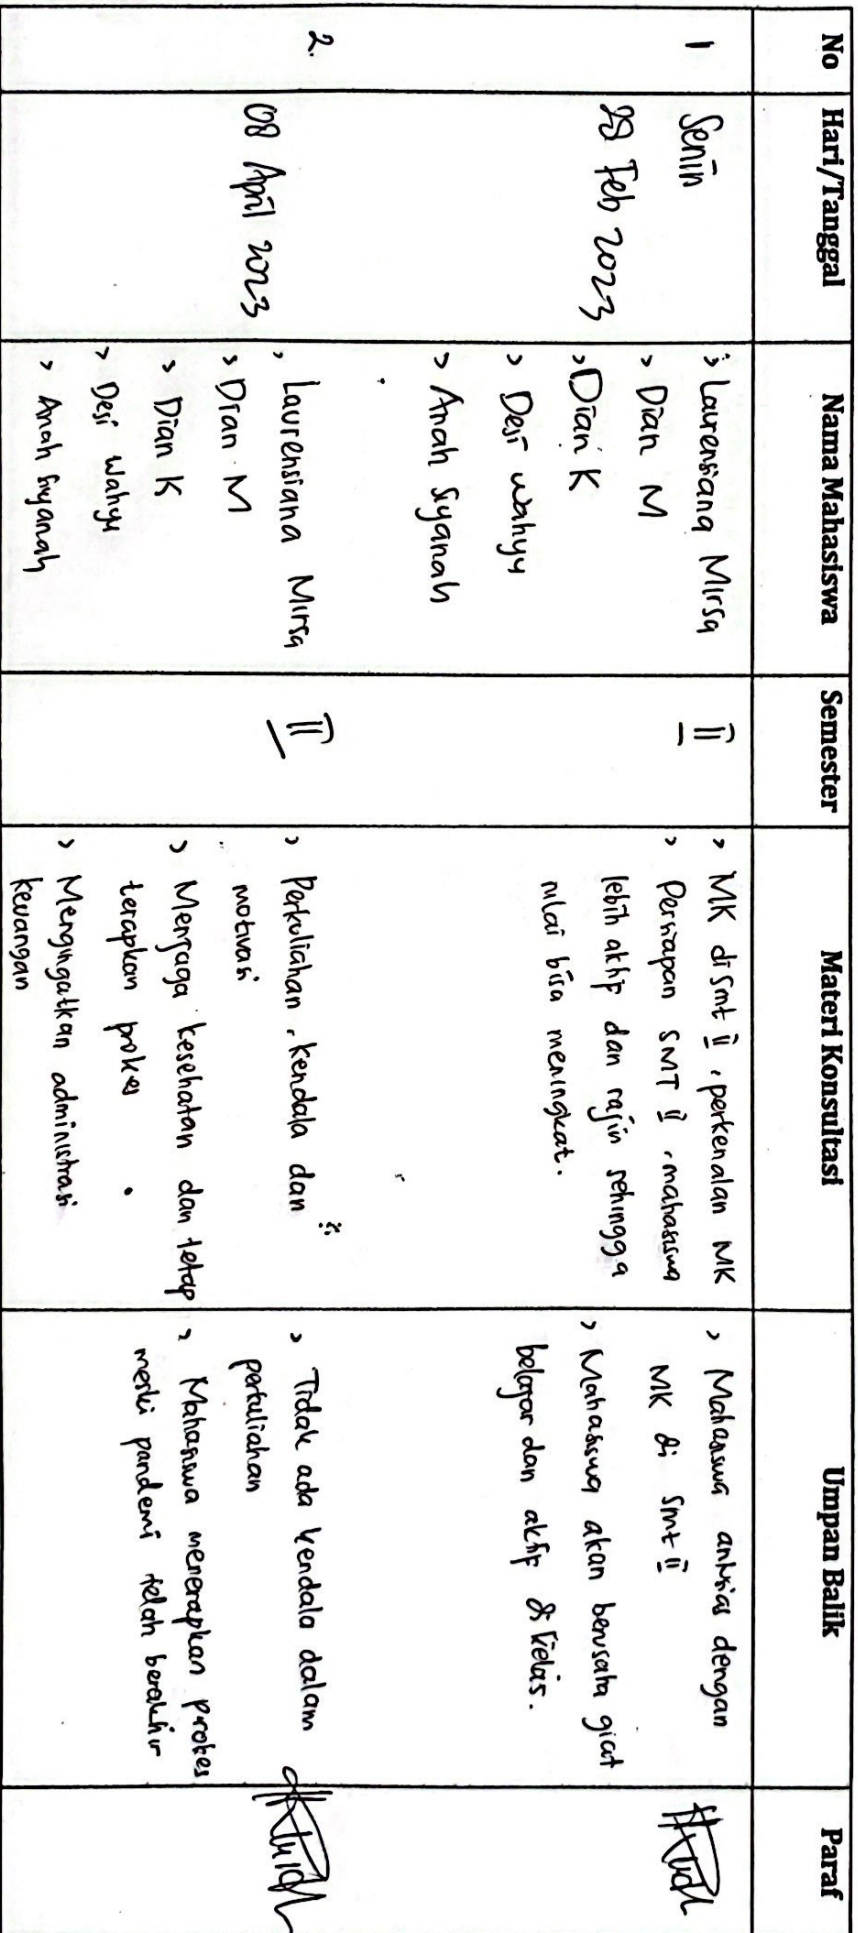 No Hari/Tanggal Nama Mahasiswa Semester Materi Konsultasi Umpan Balik Paraf
1
Senin
28 Feb 2023
> Laurensiana Mirsa
> Dian M
> Dian K
> Desi Wahyu
> Anah Siyanah
II
> MK di smt II, perkenalan MK
> Persiapan SMT II, mahasiswa
lebih aktif dan rajin sehingga
nilai bisa meningkat.
> Mahasiswa antusias dengan
MK di smt II
> Mahasiswa akan berusaha giat
belajar dan aktif di kelas.
2.
08 April 2023
> Laurensiana Mirsa
> Dian M
> Dian K
> Desi Wahyu
> Anah Siyanah
II
> Perkuliahan, kendala dan
motivasi
> Menjaga kesehatan dan tetap
terapkan prokes
> Mengingatkan administrasi
keuangan
> Tidak ada kendala dalam
perkuliahan
> Mahasiswa menerapkan prokes
meski pandemi telah berakhir